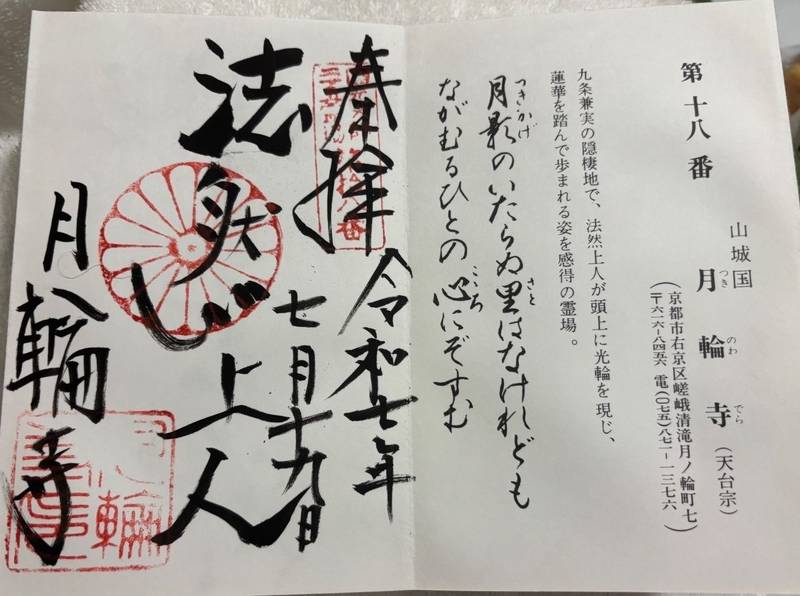 第十八番
山城国
月輪寺(天台宗)
つきのわでら
(京都市右京区嵯峨清滝月ノ輪町七
〒六一六―八四五六 電(〇七五)八七一―一三七六)
九条兼実の隠棲地で、法然上人が頭上に光輪を現じ、
蓮華を踏んで歩まれる姿を感得の霊場。
月影のいたらぬ里はなけれども
つきかげ
さと
ながむるひとの心にぞすむ
こころ
奉拝
令和七年
七月十九日
法然上人
月輪寺